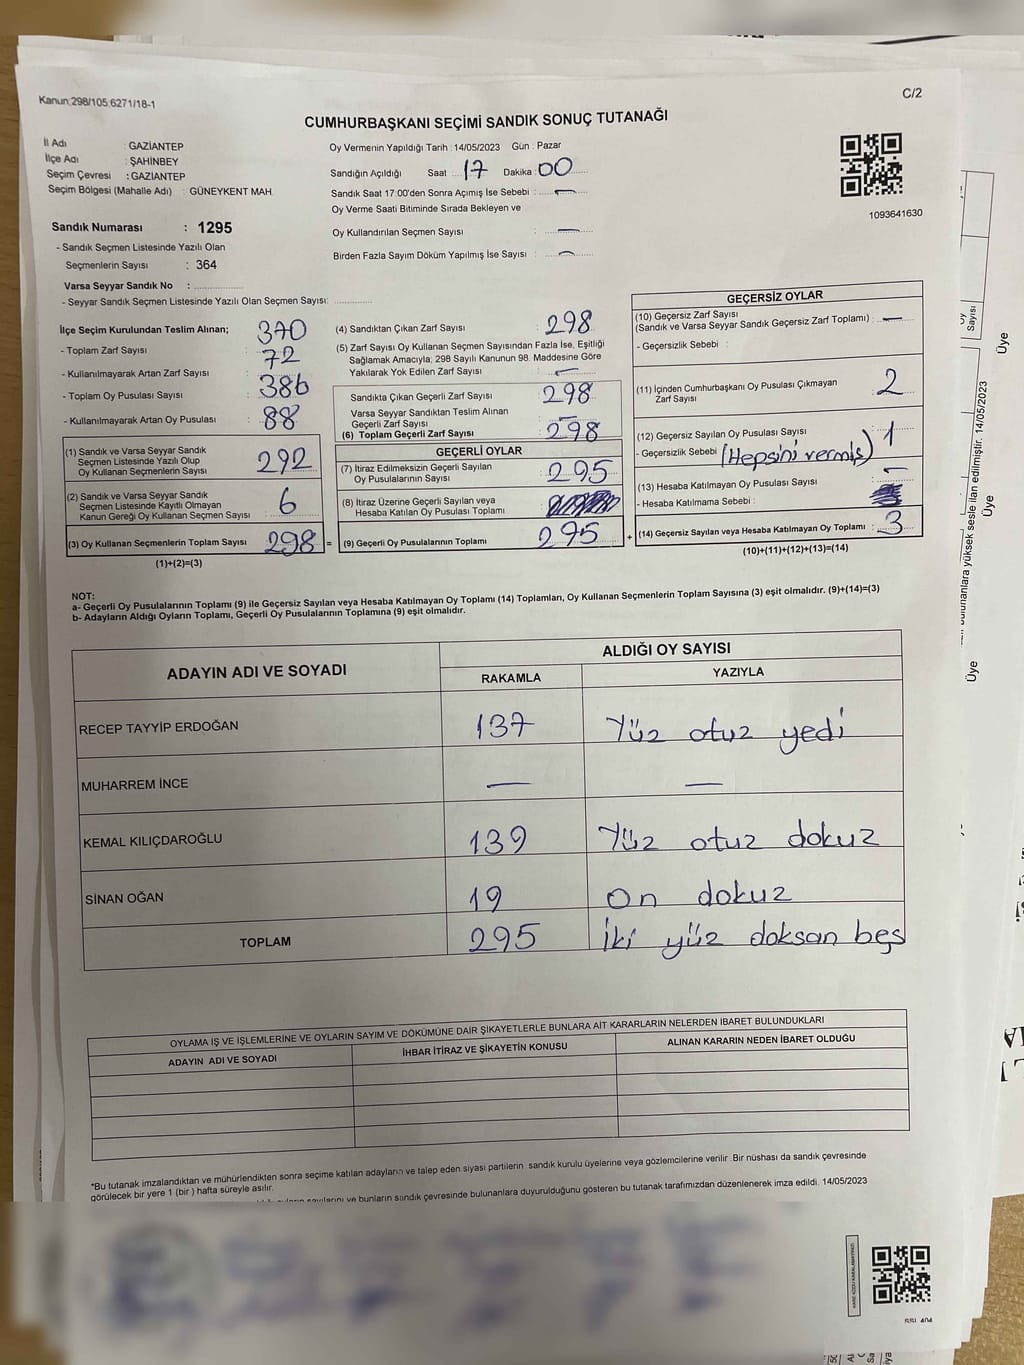 Kanun;298/105;6271/18-1
C/2
CUMHURBAŞKANI SEÇİMİ SANDIK SONUÇ TUTANAĞI
İl Adı : GAZİANTEP
İlçe Adı : ŞAHİNBEY
Seçim Çevresi : GAZİANTEP
Seçim Bölgesi (Mahalle Adı) : GÜNEYKENT MAH.
Oy Vermenin Yapıldığı Tarih : 14/05/2023 Gün : Pazar
Sandığın Açıldığı Saat : 17 Dakika : 00
Sandık Saat 17:00'den Sonra Açımış İse Sebebi : —
Oy Verme Saati Bitiminde Sırada Bekleyen ve
Oy Kullandırılan Seçmen Sayısı : —
Birden Fazla Sayım Döküm Yapılmış İse Sayısı : —
1093641630
Sandık Numarası : 1295
- Sandık Seçmen Listesinde Yazılı Olan
Seçmenlerin Sayısı : 364
Varsa Seyyar Sandık No :
- Seyyar Sandık Seçmen Listesinde Yazılı Olan Seçmen Sayısı:
İlçe Seçim Kurulundan Teslim Alınan;
- Toplam Zarf Sayısı : 370
- Kullanılmayarak Artan Zarf Sayısı : 72
- Toplam Oy Pusulası Sayısı : 386
- Kullanılmayarak Artan Oy Pusulası : 88
(1) Sandık ve Varsa Seyyar Sandık
Seçmen Listesinde Yazılı Olup
Oy Kullanan Seçmenlerin Sayısı : 292
(2) Sandık ve Varsa Seyyar Sandık
Seçmen Listesinde Kayıtlı Olmayan
Kanun Gereği Oy Kullanan Seçmen Sayısı : 6
(3) Oy Kullanan Seçmenlerin Toplam Sayısı : 298 =
(1)+(2)=(3)
(4) Sandıktan Çıkan Zarf Sayısı : 298
(5) Zarf Sayısı Oy Kullanan Seçmen Sayısından Fazla İse, Eşitliği
Sağlamak Amacıyla; 298 Sayılı Kanunun 98. Maddesine Göre
Yakılarak Yok Edilen Zarf Sayısı : —
Sandıkta Çıkan Geçerli Zarf Sayısı : 298
Varsa Seyyar Sandıktan Teslim Alınan
Geçerli Zarf Sayısı : —
(6) Toplam Geçerli Zarf Sayısı : 298
GEÇERLİ OYLAR
(7) İtiraz Edilmeksizin Geçerli Sayılan
Oy Pusulasının Sayısı : 295
(8) İtiraz Üzerine Geçerli Sayılan veya
Hesaba Katılan Oy Pusulası Toplamı :
(9) Geçerli Oy Pusulalarının Toplamı : 295 +
GEÇERSİZ OYLAR
(10) Geçersiz Zarf Sayısı
(Sandık ve Varsa Seyyar Sandık Geçersiz Zarf Toplamı) : —
- Geçersizlik Sebebi :
(11) İçinden Cumhurbaşkanı Oy Pusulası Çıkmayan
Zarf Sayısı : 2
(12) Geçersiz Sayılan Oy Pusulası Sayısı : 1
- Geçersizlik Sebebi : (Hepsini vermiş)
(13) Hesaba Katılmayan Oy Pusulası Sayısı : —
- Hesaba Katılmama Sebebi :
(14) Geçersiz Sayılan veya Hesaba Katılmayan Oy Toplamı : 3
(10)+(11)+(12)+(13)=(14)
NOT:
a- Geçerli Oy Pusulalarının Toplamı (9) ile Geçersiz Sayılan veya Hesaba Katılmayan Oy Toplamı (14) Toplamları, Oy Kullanan Seçmenlerin Toplam Sayısına (3) eşit olmalıdır. (9)+(14)=(3)
b- Adayların Aldığı Oyların Toplamı, Geçerli Oy Pusulalarının Toplamına (9) eşit olmalıdır.
ADAYIN ADI VE SOYADI
ALDIĞI OY SAYISI
RAKAMLA YAZIYLA
RECEP TAYYİP ERDOĞAN 137 Yüz otuz yedi
MUHARREM İNCE — —
KEMAL KILIÇDAROĞLU 139 Yüz otuz dokuz
SİNAN OĞAN 19 On dokuz
TOPLAM 295 İki yüz doksan beş
OYLAMA İŞ VE İŞLEMLERİNE VE OYLARIN SAYIM VE DÖKÜMÜNE DAİR ŞİKAYETLERLE BUNLARA AİT KARARLARIN NELERDEN İBARET BULUNDUKLARI
ADAYIN ADI VE SOYADI İHBAR İTİRAZ VE ŞİKAYETİN KONUSU ALINAN KARARIN NEDEN İBARET OLDUĞU
*Bu tutanak imzalandıktan ve mühürlendikten sonra seçime katılan adayların ve talep eden siyasi partilerin sandık kurulu üyelerine veya gözlemcilerine verilir .Bir nüshası da sandık çevresinde
görülecek bir yere 1 (bir ) hafta süreyle asılır.
sayılarını ve bunların sandık çevresinde bulunanlara duyurulduğunu gösteren bu tutanak tarafımızdan düzenlenerek imza edildi. 14/05/2023
Sayısı
Üye
bulunanlara yüksek sesle ilan edilmiştir. 14/05/2023
Üye
Üye